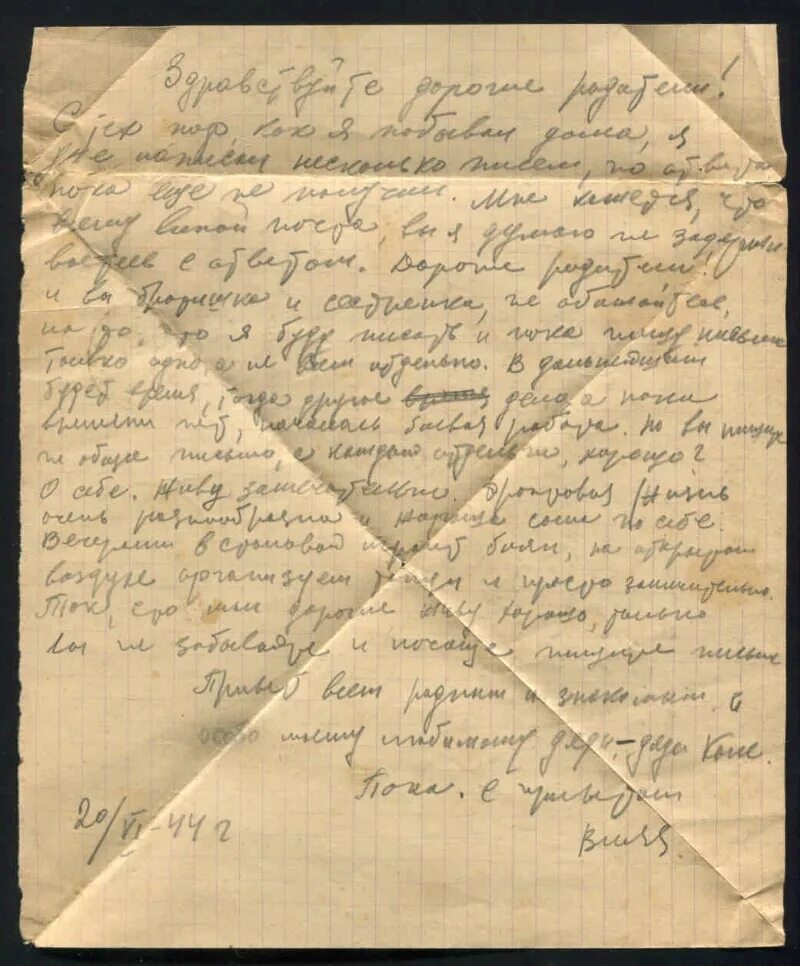 Здравствуйте дорогие родители!
С тех пор, как я побывал дома, я
уже написал несколько писем, но ответа
пока еще не получил. Мне кажется, что
всему виной почта, вы я думаю не задержи-
ваетесь с ответом. Дорогие родители!
и вы братишка и сестренка, не обижайтесь,
на то, что я буду писать и пока пишу письма
только одно, а не всем отдельно. В дальнейшем
будет время, тогда другое дело, а пока
времени нет, началась боевая работа. Но вы пишите
не общее письмо, а каждый отдельно, хорошо?
О себе. Живу замечательно. Фронтовая жизнь
очень разнообразна и хороша сама по себе.
Вечерами в столовой играет баян, на открытом
воздухе организуем танцы и просто замечательно.
Так, что мои дорогие живу хорошо, только
вы не забывайте и почаще пишите письма
Привет всем родным и знакомым и
особо моему любимому дяде,-дяде Коле.
Пока. С приветом
20/VI-44 г
Виля.